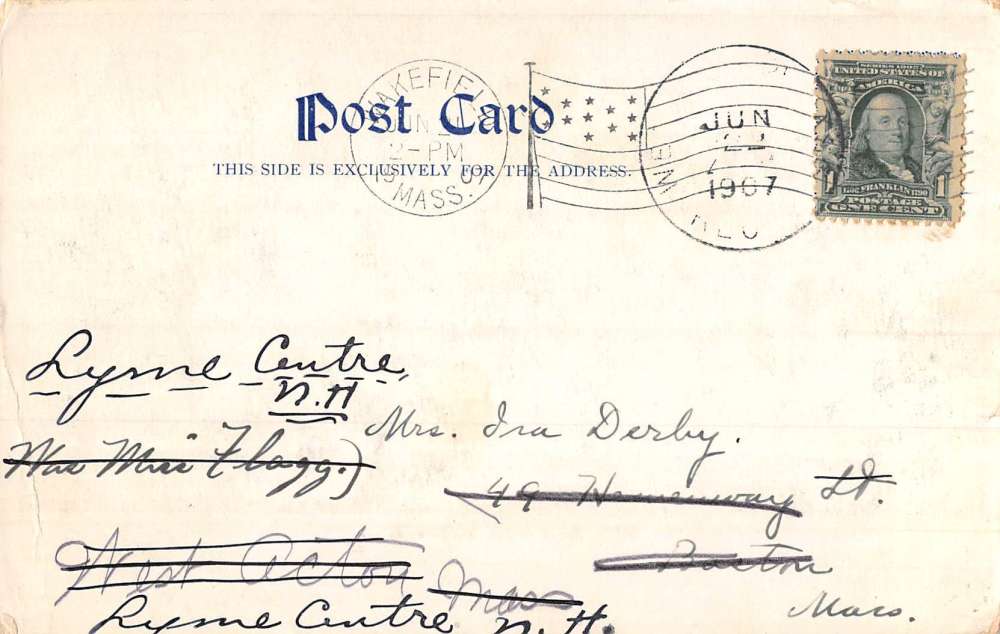 Post Card
THIS SIDE IS EXCLUSIVELY FOR THE ADDRESS.
WAKEFIELD
JUN
2-PM
MASS.
JUN
22
1907
REC
SERIES 1902
UNITED STATES OF
AMERICA
1706 FRANKLIN 1790
1 1
POSTAGE
ONE CENT
Lyme Centre,
N.H
Mrs. Ira Derby.
Was Miss Flagg.)
49 Hemenway St.
West Acton
Boston
Mass
Mass.
Lyme Centre N.H.